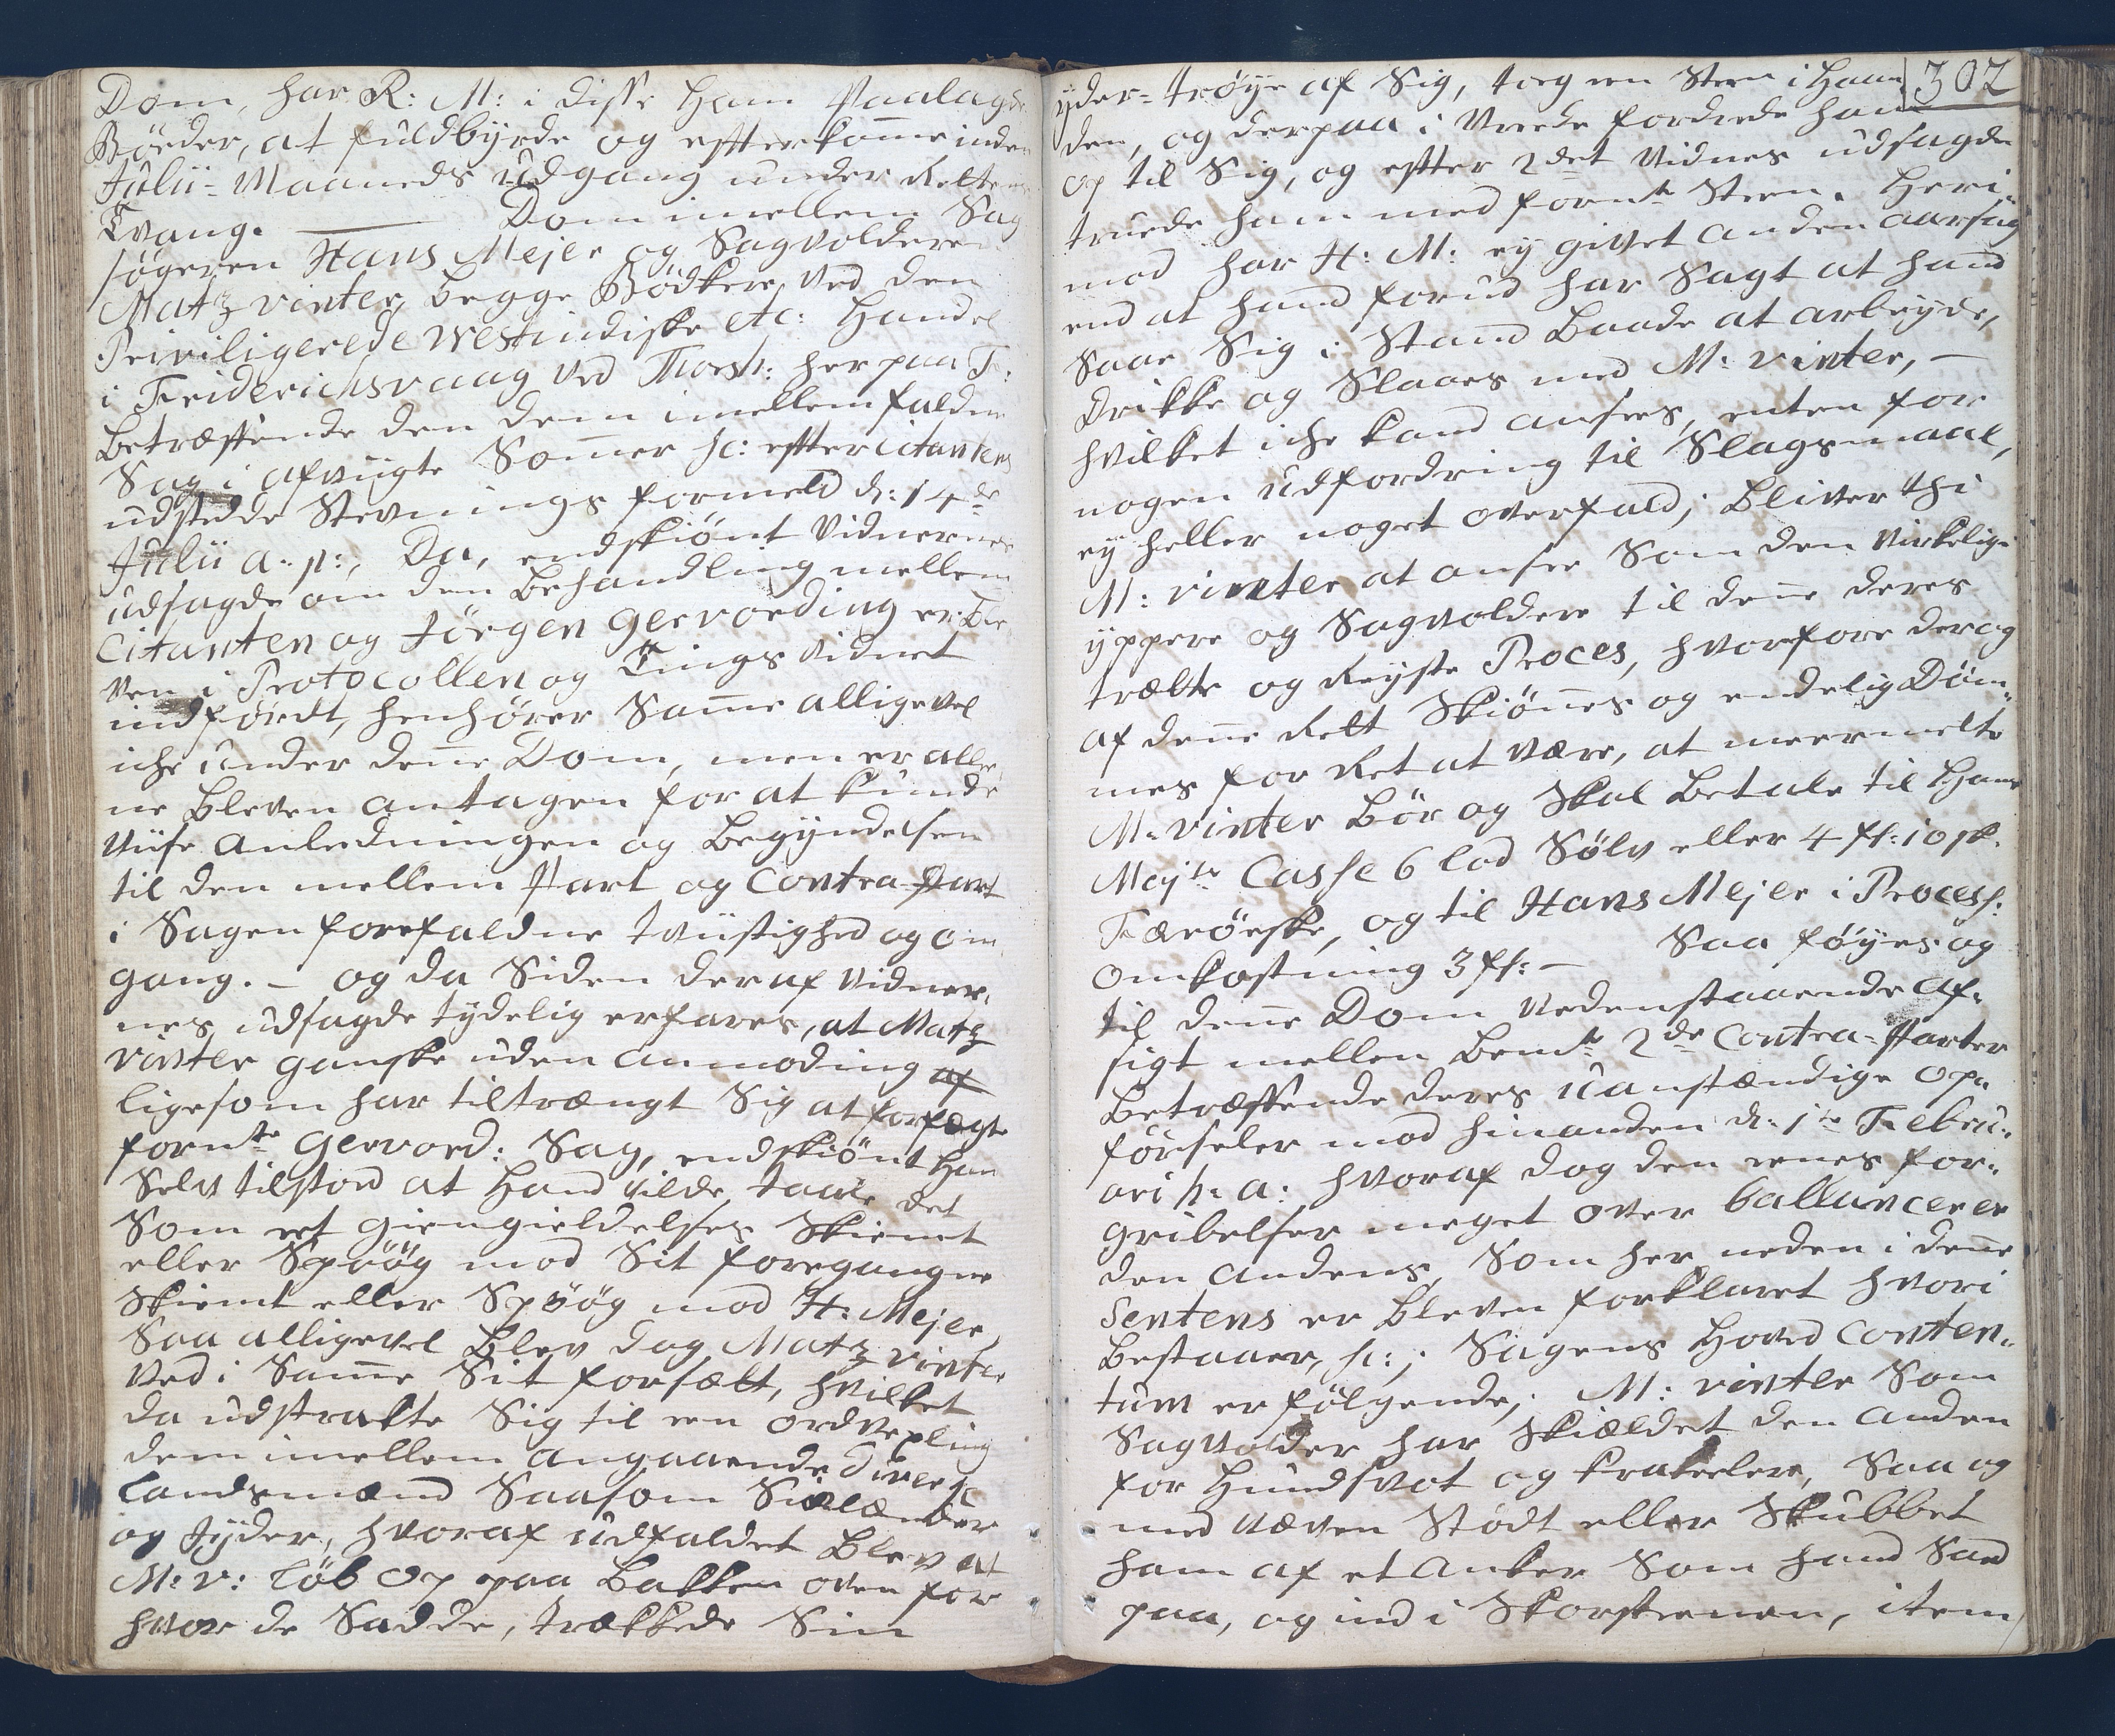 Dom, har R: M: i disse ham Paalagde
Bøeder, at fuldbyrde og efterkomme inden
Julii-Maaneds Udgang under Rettens
Tvang. — Dom imellem Sag
søgeren Hans Mejer og Sagvolderen
Matz vinter, begge Bødkere ved den
Priviligerede Westindiske etc: Handel
i Friderichsvaag ved Thorsh: her paa F:
Betræffende den dem imellem faldne
Sag i afvigte Sommer sc: efter Citantens
udstædde Stevnings formeld d: 14de
Julii a. p:, Da, endskiønt Vidnernes
udsagde om den Behandling mellem
Citanten og Jörgen Gervording er ble
ven i Protocollen og Tingsvidnet
indførdt, henhører Samme alligevel
iche under denne Dom, men er alle
ne bleven antagen for at kunde
viise Anledningen og Begyndelsen
til den mellem Part og Contra-Part
i Sagen forefaldne tviistighed og om
gang. — og da Siden deraf Vidner,
nes udsagde tydelig erfares, at Matz
vinter ganske uden anmoding af
ligesom har tiltrængt Sig at forfægte
fornte Gervord: Sag, endskiönt han
Selv tilstod at Hand vilde taale det
Som et giengieldelses Skiemt
eller Spöög mod Sit foregangne
Skiemt eller Spöög mod H: Mejer,
Saa alligevel blev dog Matz vinter
ved i Samme Sit forsætt, hvilket
da udstrakte Sig til een ordvexling
dem imellem angaaende divers
Landsmænd Saasom Siælænder
og Jyder, hvoraf udfaldet blev at
M: v: löb op paa Bakken oven for
hvor de Sadde, trækkede Sin
302
yder-trøye af Sig, tog een Steen i Haan
den, og derpaa i Vreede fordrede ham
op til Sig, og efter 2det Vidnes udsagde
truede ham med fornte Steen. Heri-
mod har H: M: ey givet anden aarsag
end at hand forud har Sagt at hand
Saae Sig i Stand baade at arbeyde,
drikke og Slaaes med M: vinter, —
hvilket iche kand ansees, enten for
nogen udfordring til Slagsmaal,
ey heller noget overfald; bliver thi
M: vinter at ansee Som den virkelige
yppere og Sagvoldere til denne deres
trætte og reyste Proces, hvorfore der og
af denne Rett Skiønnes og endelig Döm-
mes for Ret at være, at meermelte
M: vinter bör og Skal betale til Hans
Mayts Casse 6 lod Sölv eller 4 fl: 10 sk.
Færöeske, og til Hans Mejer i Process:
Omkostning 3 fl: — Saa föyes og
til denne Dom nedenstaaende af-
sigt mellem bemte 2de Contra-Parter
betræffende deres uanstændige op-
førseler mod hinanden d: 1te Febru-
ari h: a: hvoraf dog den eenes for-
gribelser meget over ballancerer
den andens, Som her neden i denne
Sentens er bleven forklaret hvori
bestaaer, sc:; Sagens Hoved Conten-
tum er følgende; M: vinter Som
Sagvolder har Skieldet den anden
for Hundsvot og krakeelere, Saa og
med næven Stødt eller Skubbet
ham af et Anker Som hand Sad
paa, og ind i Skorsteenen, item